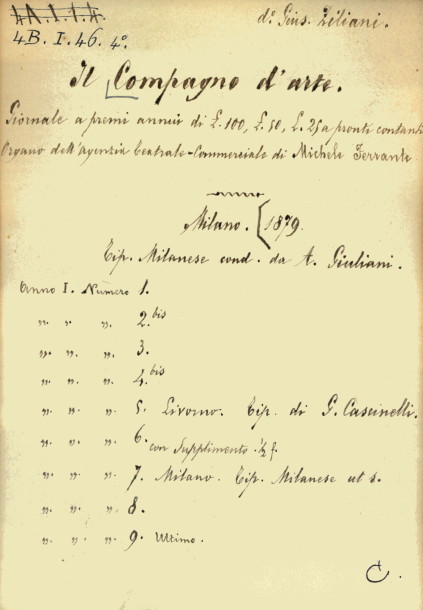 4A.I.1.A
d.r Gius. Ziliani.
4B. I. 46. 4º.
Il Compagno d'arte.
Giornale a premi annui di £. 100, £. 50, £. 25 a pronti contanti
Organo dell'Agenzia Centrale-Commerciale di Michele Ferrante
anno
Milano. [1879.
Tip. Milanese cond. da A. Giuliani.
Anno I. Numero 1.
" " " 2.bis
" " " 3.
" " " 4.bis
" " " 5. Livorno. Tip. di G. Cascinelli.
" " " 6. con Supplimento ½ f.
" " " 7. Milano. Tip. Milanese ut s.
" " " 8.
" " " 9. Ultimo.
C.